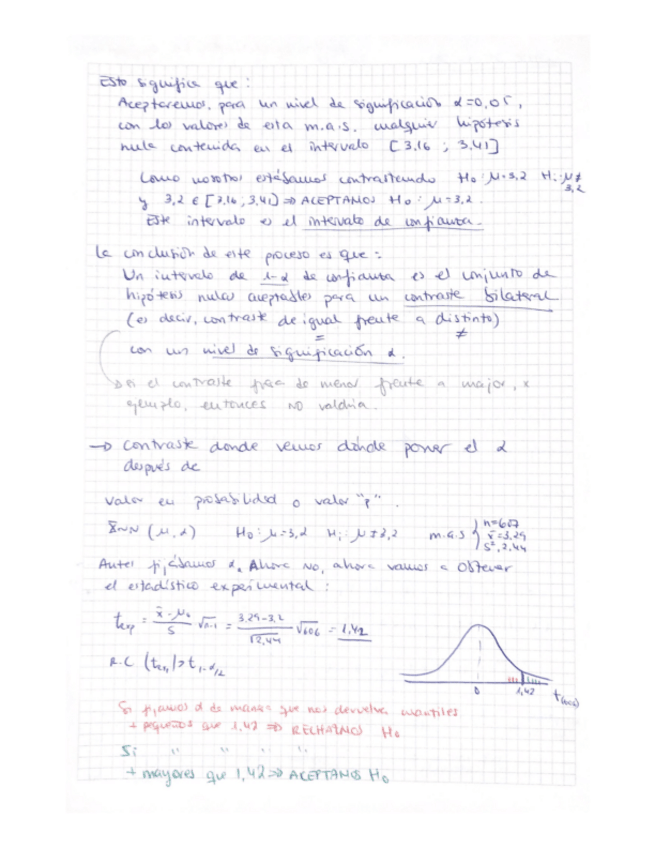 Esto significa que:
Aceptaremos, para un nivel de significación α=0,05,
con los valores de esta m.a.s. cualquier hipótesis
nula contenida en el intervalo [3,16 ; 3,41]
Como nosotros estábamos contrastando H₀: μ=3,2 H₁: μ≠3,2
y 3,2 ∈ [3,16; 3,41] ⇒ ACEPTAMOS H₀: μ=3,2.
Este intervalo es el intervalo de confianza.
La conclusión de este proceso es que:
Un intervalo de 1-α de confianza es el conjunto de
hipótesis nulas aceptables para un contraste bilateral
(es decir, contraste de igual frente a distinto)
= ≠
con un nivel de significación α.
si el contraste fuera de menor frente a major, x
ejemplo, entonces NO valdría.
→ Contraste donde vemos dónde poner el α
después de
valor en probabilidad o valor "p".
H₀: μ=3,2 H₁: μ≠3,2 m.a.s { n=607
x̄=3,29
s²=2,44
Antes fijábamos α. Ahora no, ahora vamos a obtener
el estadístico experimental:
t_exp = x̄-μ₀/S √n-1 = 3,29-3,2/√2,44 √606 = 1,42
R.C |t_exp|>t_1-α/2
0 1,42
Si fijamos α de manera que nos devuelva cuantiles
+ pequeños que 1,42 ⇒ RECHAZAMOS H₀
Si " " " "
+ mayores que 1,42 ⇒ ACEPTAMOS H₀